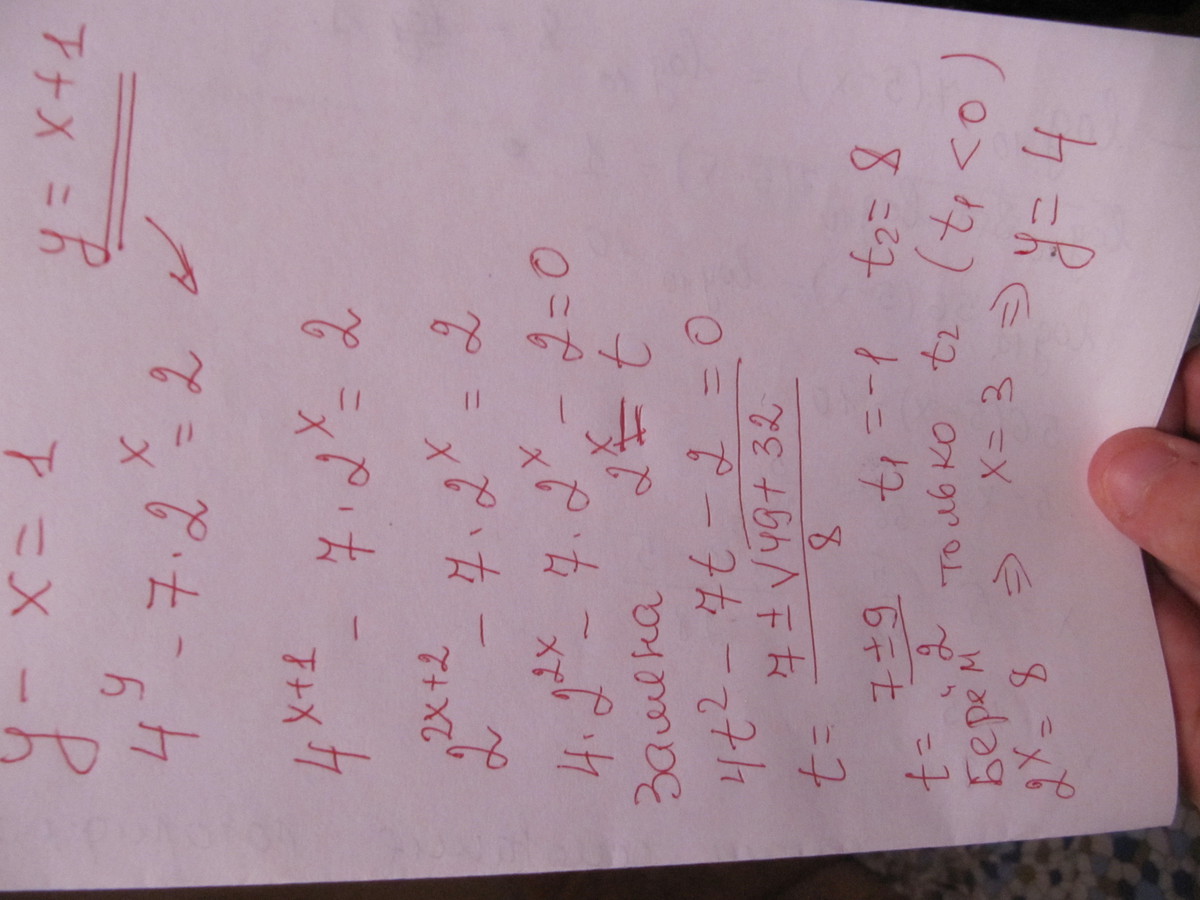 y - x = 1 y = x+1
4^y - 7·2^x = 2
4^(x+1) - 7·2^x = 2
2^(2x+2) - 7·2^x = 2
4·2^(2x) - 7·2^x - 2 = 0
Замена 2^x = t
4t² - 7t - 2 = 0
t = (7 ± √(49+32))/8
t = (7±9)/2 t₁ = -1 t₂ = 8
Берём только t₂ (t₁ < 0)
2^x = 8 ⇒ x = 3 ⇒ y = 4